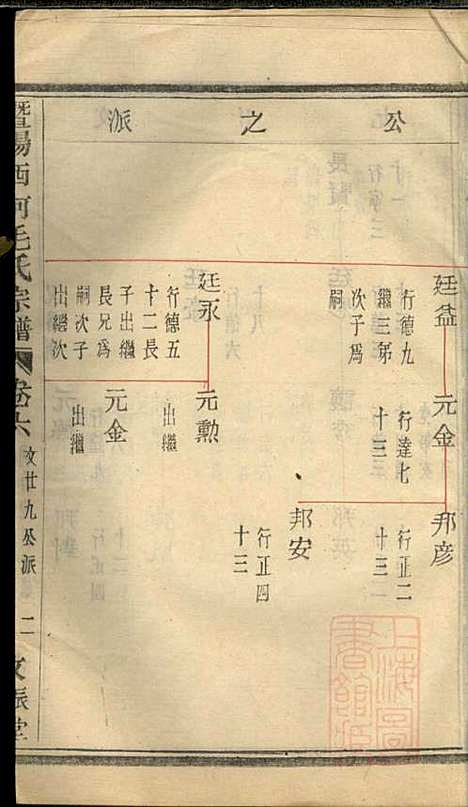 公之派
廷益
行德九
繼三弟
次子爲
嗣
元金
行達七
十三
邦彦
行正二
十三
邦安
行正四
十三
廷永
行德五
十二長
子出繼
長兄爲
嗣次子
出繼次
元勳
出繼
元金
出繼
暨陽西河毛氏宗譜
卷六
文廿九公派
二
文振堂
上海圖書館藏